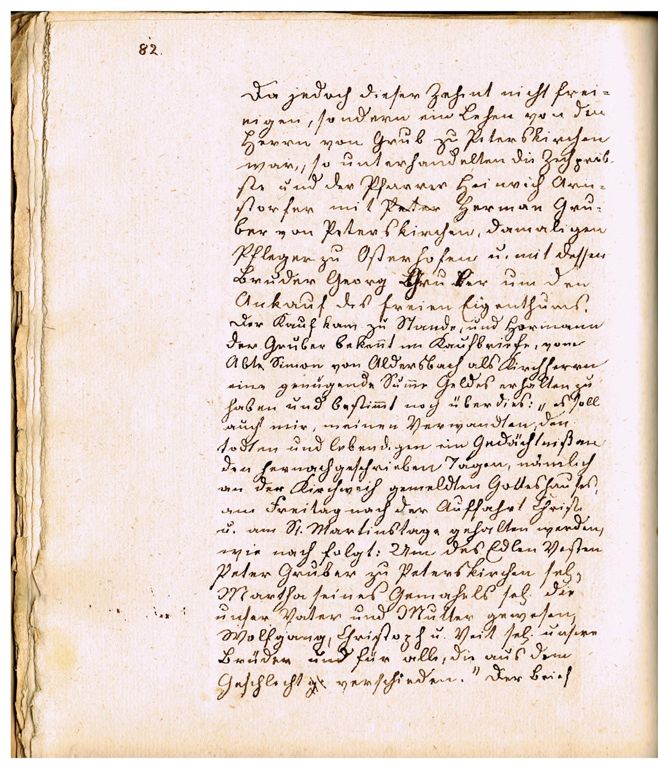 82.
Da jedoch dieser Zehent nicht frei-
eigen, sondern ein Lehen von den
Herrn von Grub zu Peterskirchen
war, so unterhandelten die Zechpröb-
ste und der Pfarrer Heinrich Arn-
storfer mit Peter Herman Gru-
ber von Peterskirchen, damaligen
Pfleger zu Osterhofen u. mit dessen
Bruder Georg Gruber um den
Ankauf des freien Eigenthums.
Der Kauf kam zu Stande, und Hormann
der Gruber bekennt im Kaufbriefe, vom
Abte Simon von Aldersbach als Kirchherrn
eine genügende Summe Geldes erhalten zu
haben und bestimmt noch überdies: „es soll
auch mir, meinen Verwandten, den
todten und lebendigen ein Gedächtniß an
den hernachgeschrieben Tagen, nämlich
an der Kirchweih gemeldten Gotteshauses,
am Freitag nach der Auffahrt Christi
u. am St. Martinstage gehalten werden,
wie nach folgt: Um des Edlen Vesten
Peter Gruber zu Peterskirchen sel.,
Martha seines Gemahels sel. die
unser Vater und Mutter gewesen,
Wolfgang, Christoph u. Veit sel. unsere
Brüder und für alle, die aus dem
Geschlecht verschieden." Der Brief